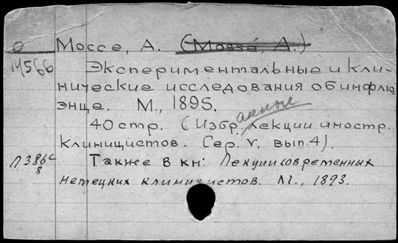 Моссе, А. (Mossé, A.)
14566 Экспериментальные и кли-
нические исследования об инфлю
энце. М., 1895.
40 стр. (Избранные лекции иностр.
клиницистов. Сер. V, вып. 4).
Также в кн: Лекции современных
немецких клиницистов. М., 1893.